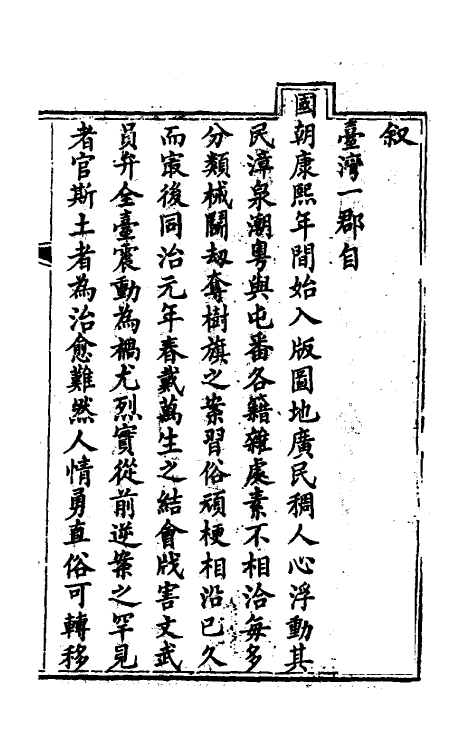 叙
臺灣一郡自
國朝康熙年間始入版圖地廣民稠人心浮動其
民漳泉潮粵與屯番各籍雜處素不相洽每多
分類械鬬刼奪樹旗之案習俗頑梗相沿已久
而㝡後同治元年春戴萬生之結會戕害文武
員弁全臺震動為禍尤烈實從前逆案之罕見
者官斯土者為治愈難然人情勇直俗可轉移